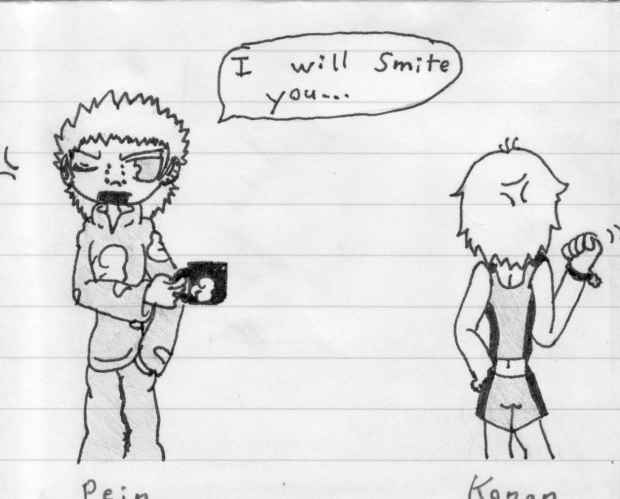 I will Smite
you...
Pein
Konan